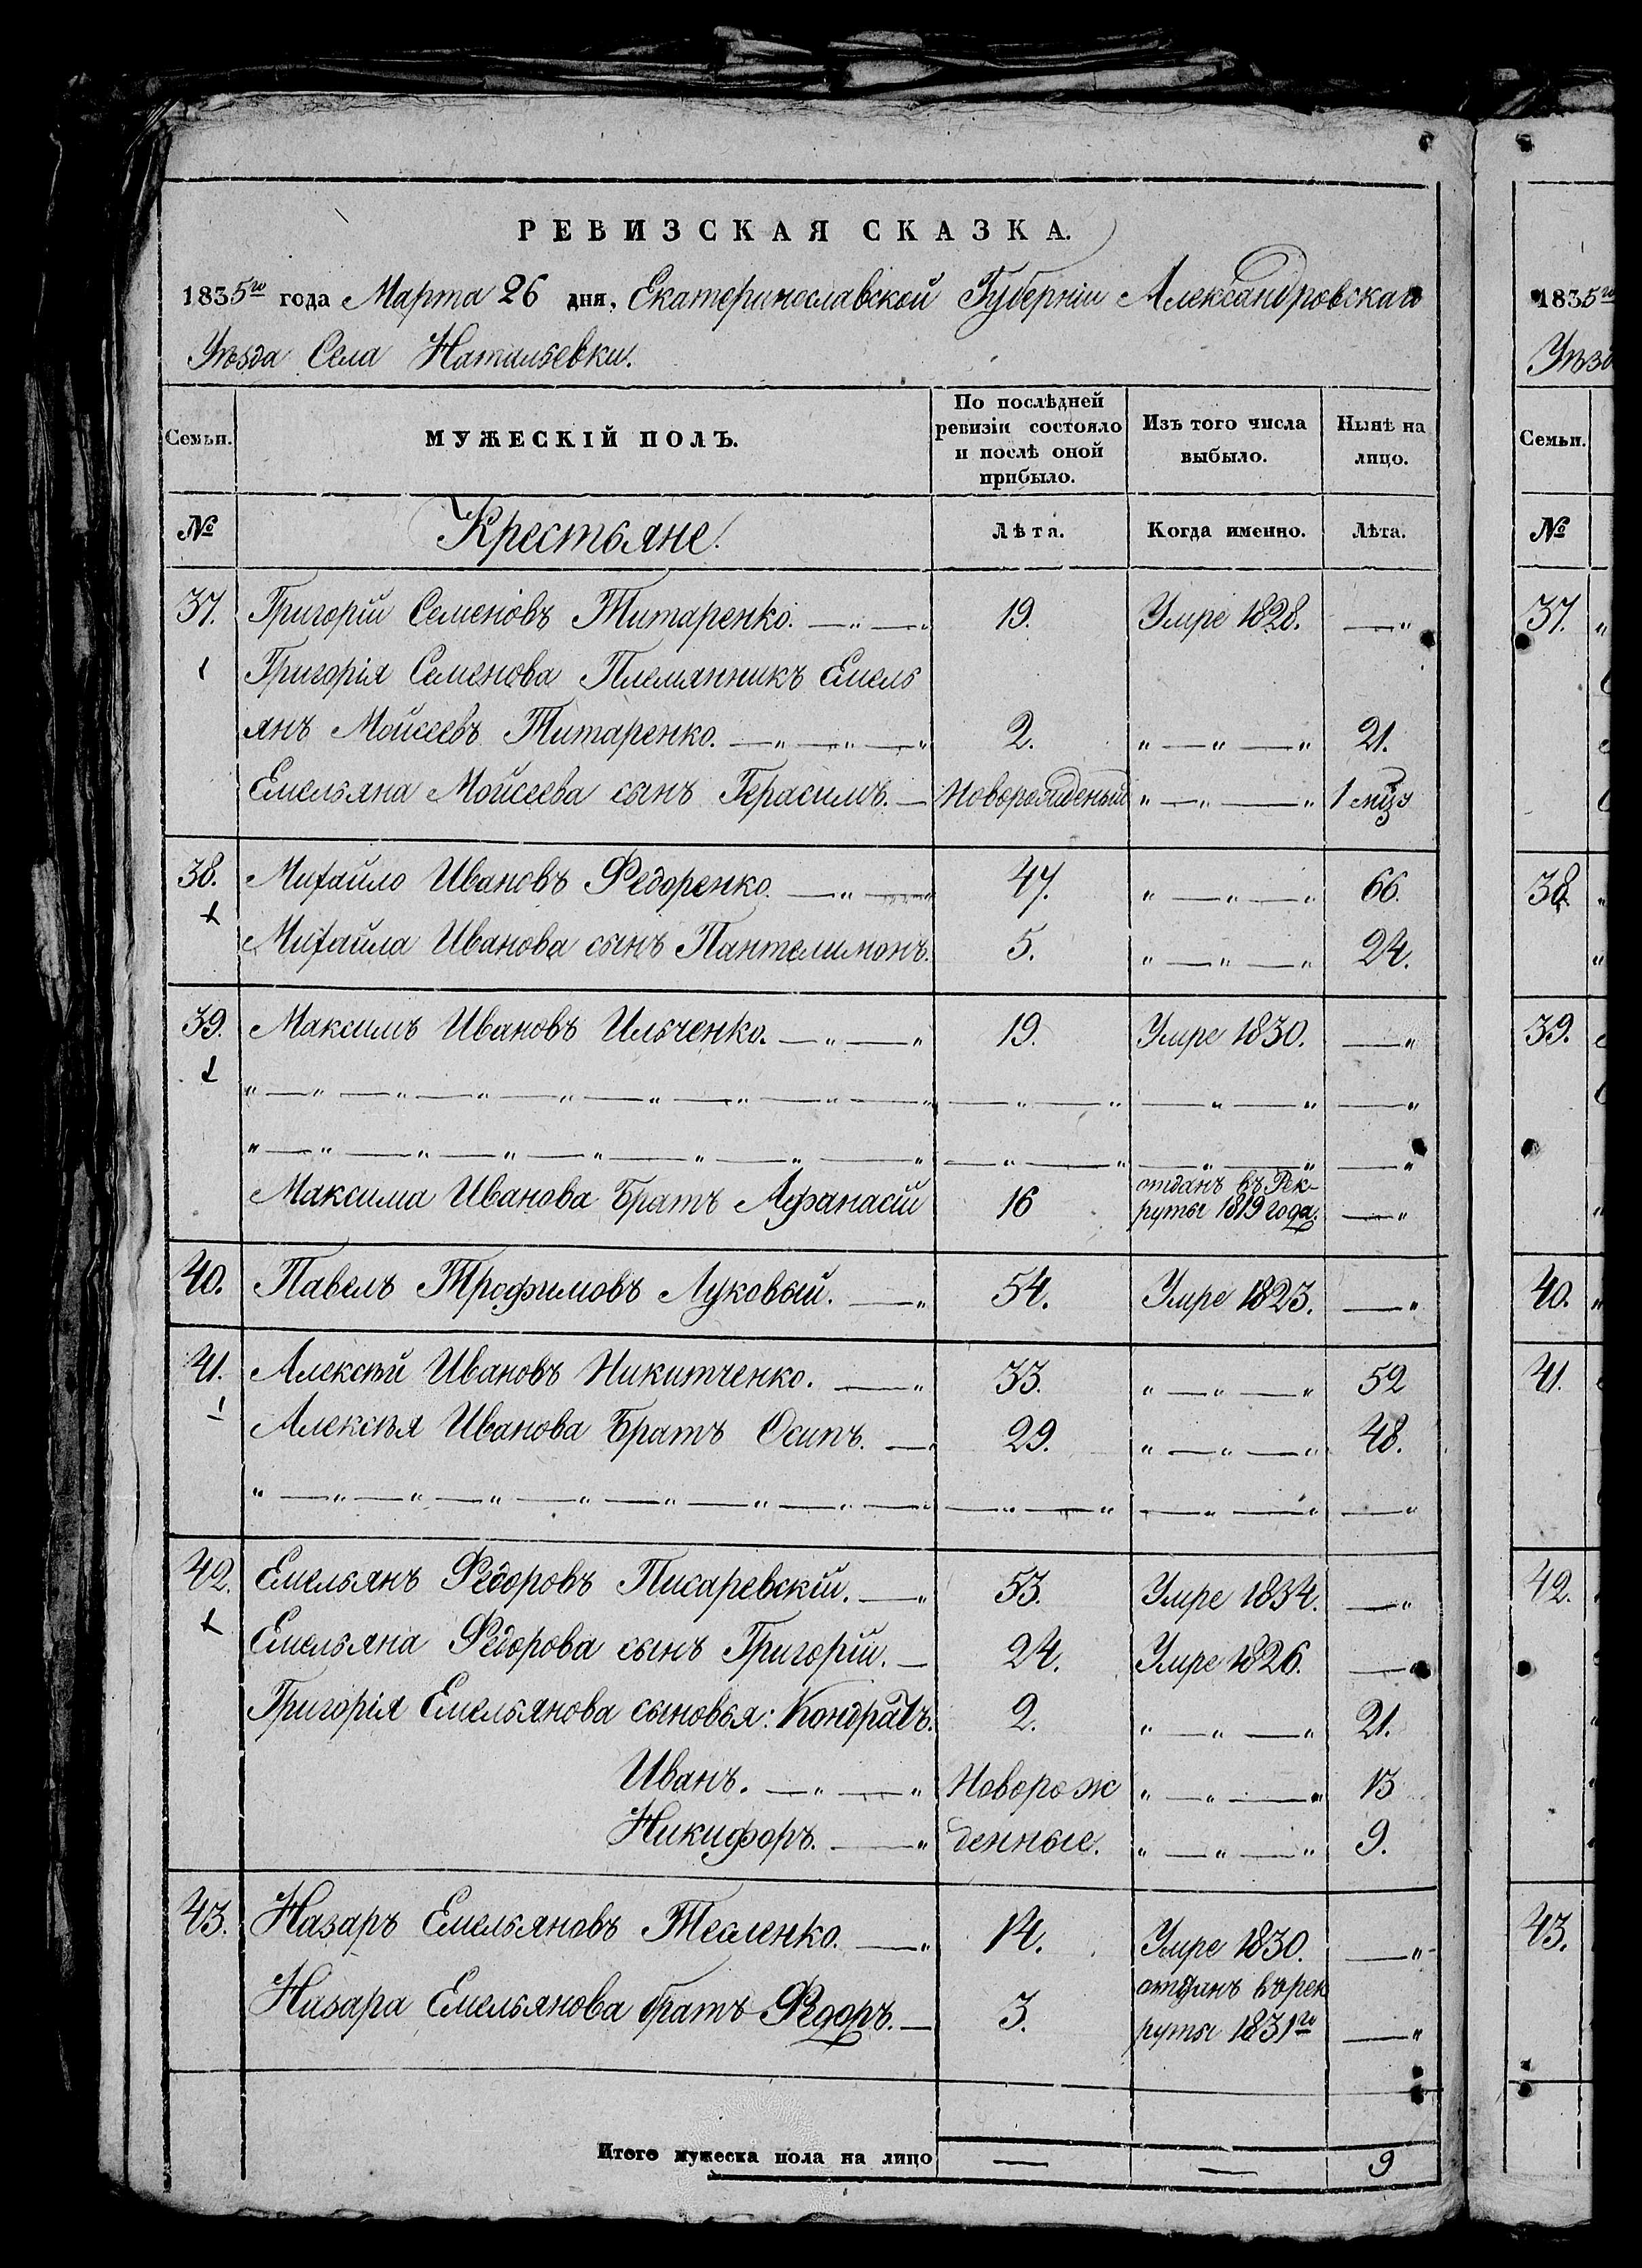 РЕВИЗСКАЯ СКАЗКА.
1835го года Марта 26 дня, Екатеринославской Губерніи Александровскаго
Уѣзда Села Натальевки.
Семьи. МУЖЕСКІЙ ПОЛЪ. По послѣдней ревизіи состояло и послѣ оной прибыло. Изъ того числа выбыло. Нынѣ на лицо.
№ Крестьяне. Лѣта. Когда именно. Лѣта.
37. Григорій Семеновъ Титаренко. — „ — „ 19. Умре 1828. — „
Григорія Семенова Племянникъ Емель
янъ Мойсеевъ Титаренко. — „ — „ — „ 2. „ — „ — „ 21.
Емельяна Мойсеева сынъ Герасимъ. — Новорожденый „ — „ — „ 1 мѣся
38. Михайло Ивановъ Федоренко. — „ — „ 47. „ — „ — „ 66.
Михайла Иванова сынъ Пантелимонъ. 5. „ — „ — „ 24.
39. Максимъ Ивановъ Ильченко. — „ — „ 19. Умре 1830. — „
„ — „ — „ — „ — „ — „ — „ — „ — „ — „ — „ — „ — „ — „
„ — „ — „ — „ — „ — „ — „ — „ — „ — „ — „ — „ — „
Максима Иванова Братъ Афанасій 16 отданъ въ Рек-
руты 1819 года. — „
40. Павелъ Трофимовъ Луковый. — „ 54. Умре 1823. — „
41. Алексѣй Ивановъ Никитченко. — „ 33. „ — „ — „ 52
Алексѣя Иванова Братъ Осипъ. — 29. „ — „ — „ 48.
„ — „ — „ — „ — „ — „ — „ — „ — „ — „ — „ — „ — „ — „
42. Емельянъ Федоровъ Писаревскій. — „ 53. Умре 1834. — „
Емельяна Федорова сынъ Григорій. — 24. Умре 1826. — „
Григорія Емельянова сыновья: Кондратъ. 2. „ — „ — „ 21.
Иванъ. — „ — „ Новорож „ — „ — „ 13
Никифоръ. — „ денные. „ — „ — „ 9.
43. Назаръ Емельяновъ Тесленко. — „ 14. Умре 1830. — „
Назара Емельянова братъ Федоръ. — 3. отданъ въ рек
руты 1831го — „
Итого мужеска пола на лицо — — 9
1835го
Уѣзд
Семьи.
№
37.
38.
39.
40.
41.
42.
43.